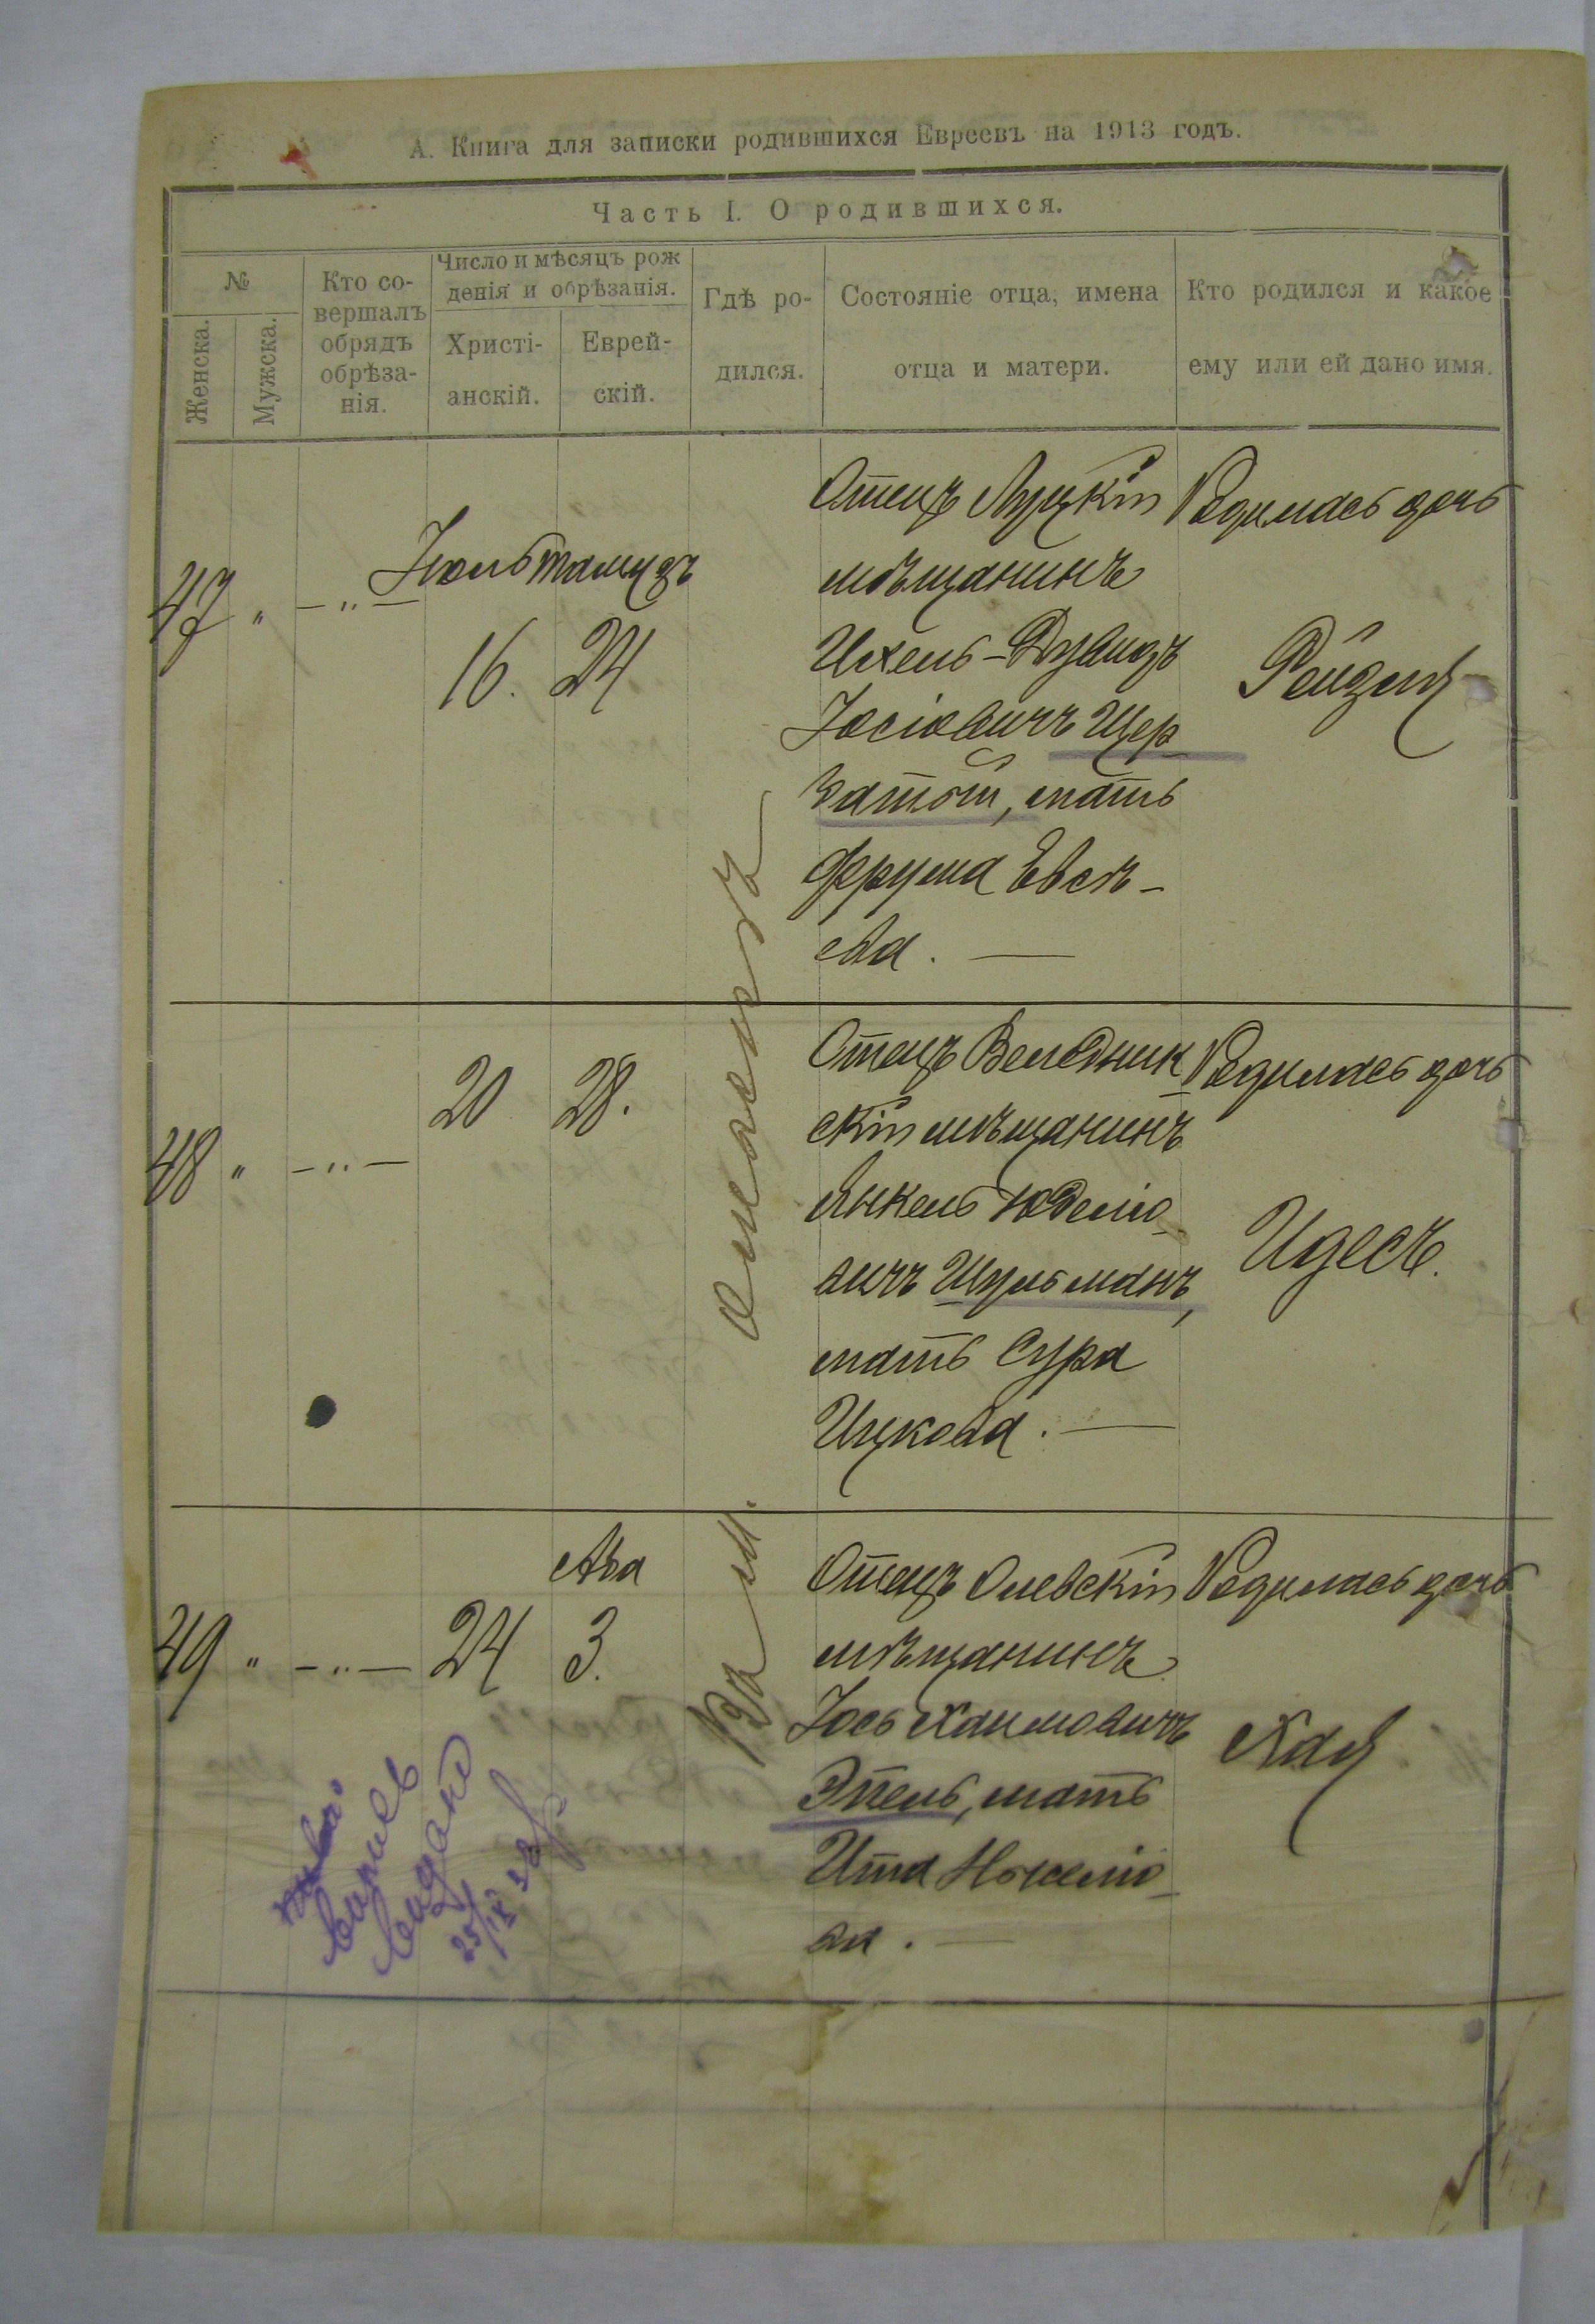 А. Книга для записки родившихся Евреевъ на 1913 годъ.
Часть I. О родившихся.
№
Женска.
Мужска.
Кто со-
вершалъ
обрядъ
обрѣза-
нія.
Число и мѣсяцъ рож
денія и обрѣзанія.
Христі-
анскій.
Еврей-
скій.
Гдѣ ро-
дился.
Состояніе отца, имена
отца и матери.
Кто родился и какое
ему или ей дано имя.
47 " — " —
Іюль Тамузъ
16. 24
Отецъ Луцкій
мѣщанинъ
Ихель-Дувидъ
Іосіовичъ Щер
батой, мать
Фрума Евсѣ-
ева. —
Родилась дочь
Рейзя
48 " — " —
20 28.
Отецъ Веледник
скій мѣщанинъ
Янкель Юделіо
вичъ Шульманъ,
мать Сура
Ицкова. —
Родилась дочь
Идесъ.
49 " — " —
24
Ава
3.
Въ м.
Отецъ Олевскій
мѣщанинъ
Іось Хаимовичъ
Эпель, мать
Ита Нохеміо-
ва. —
Родилась дочь
Хая
25/IX